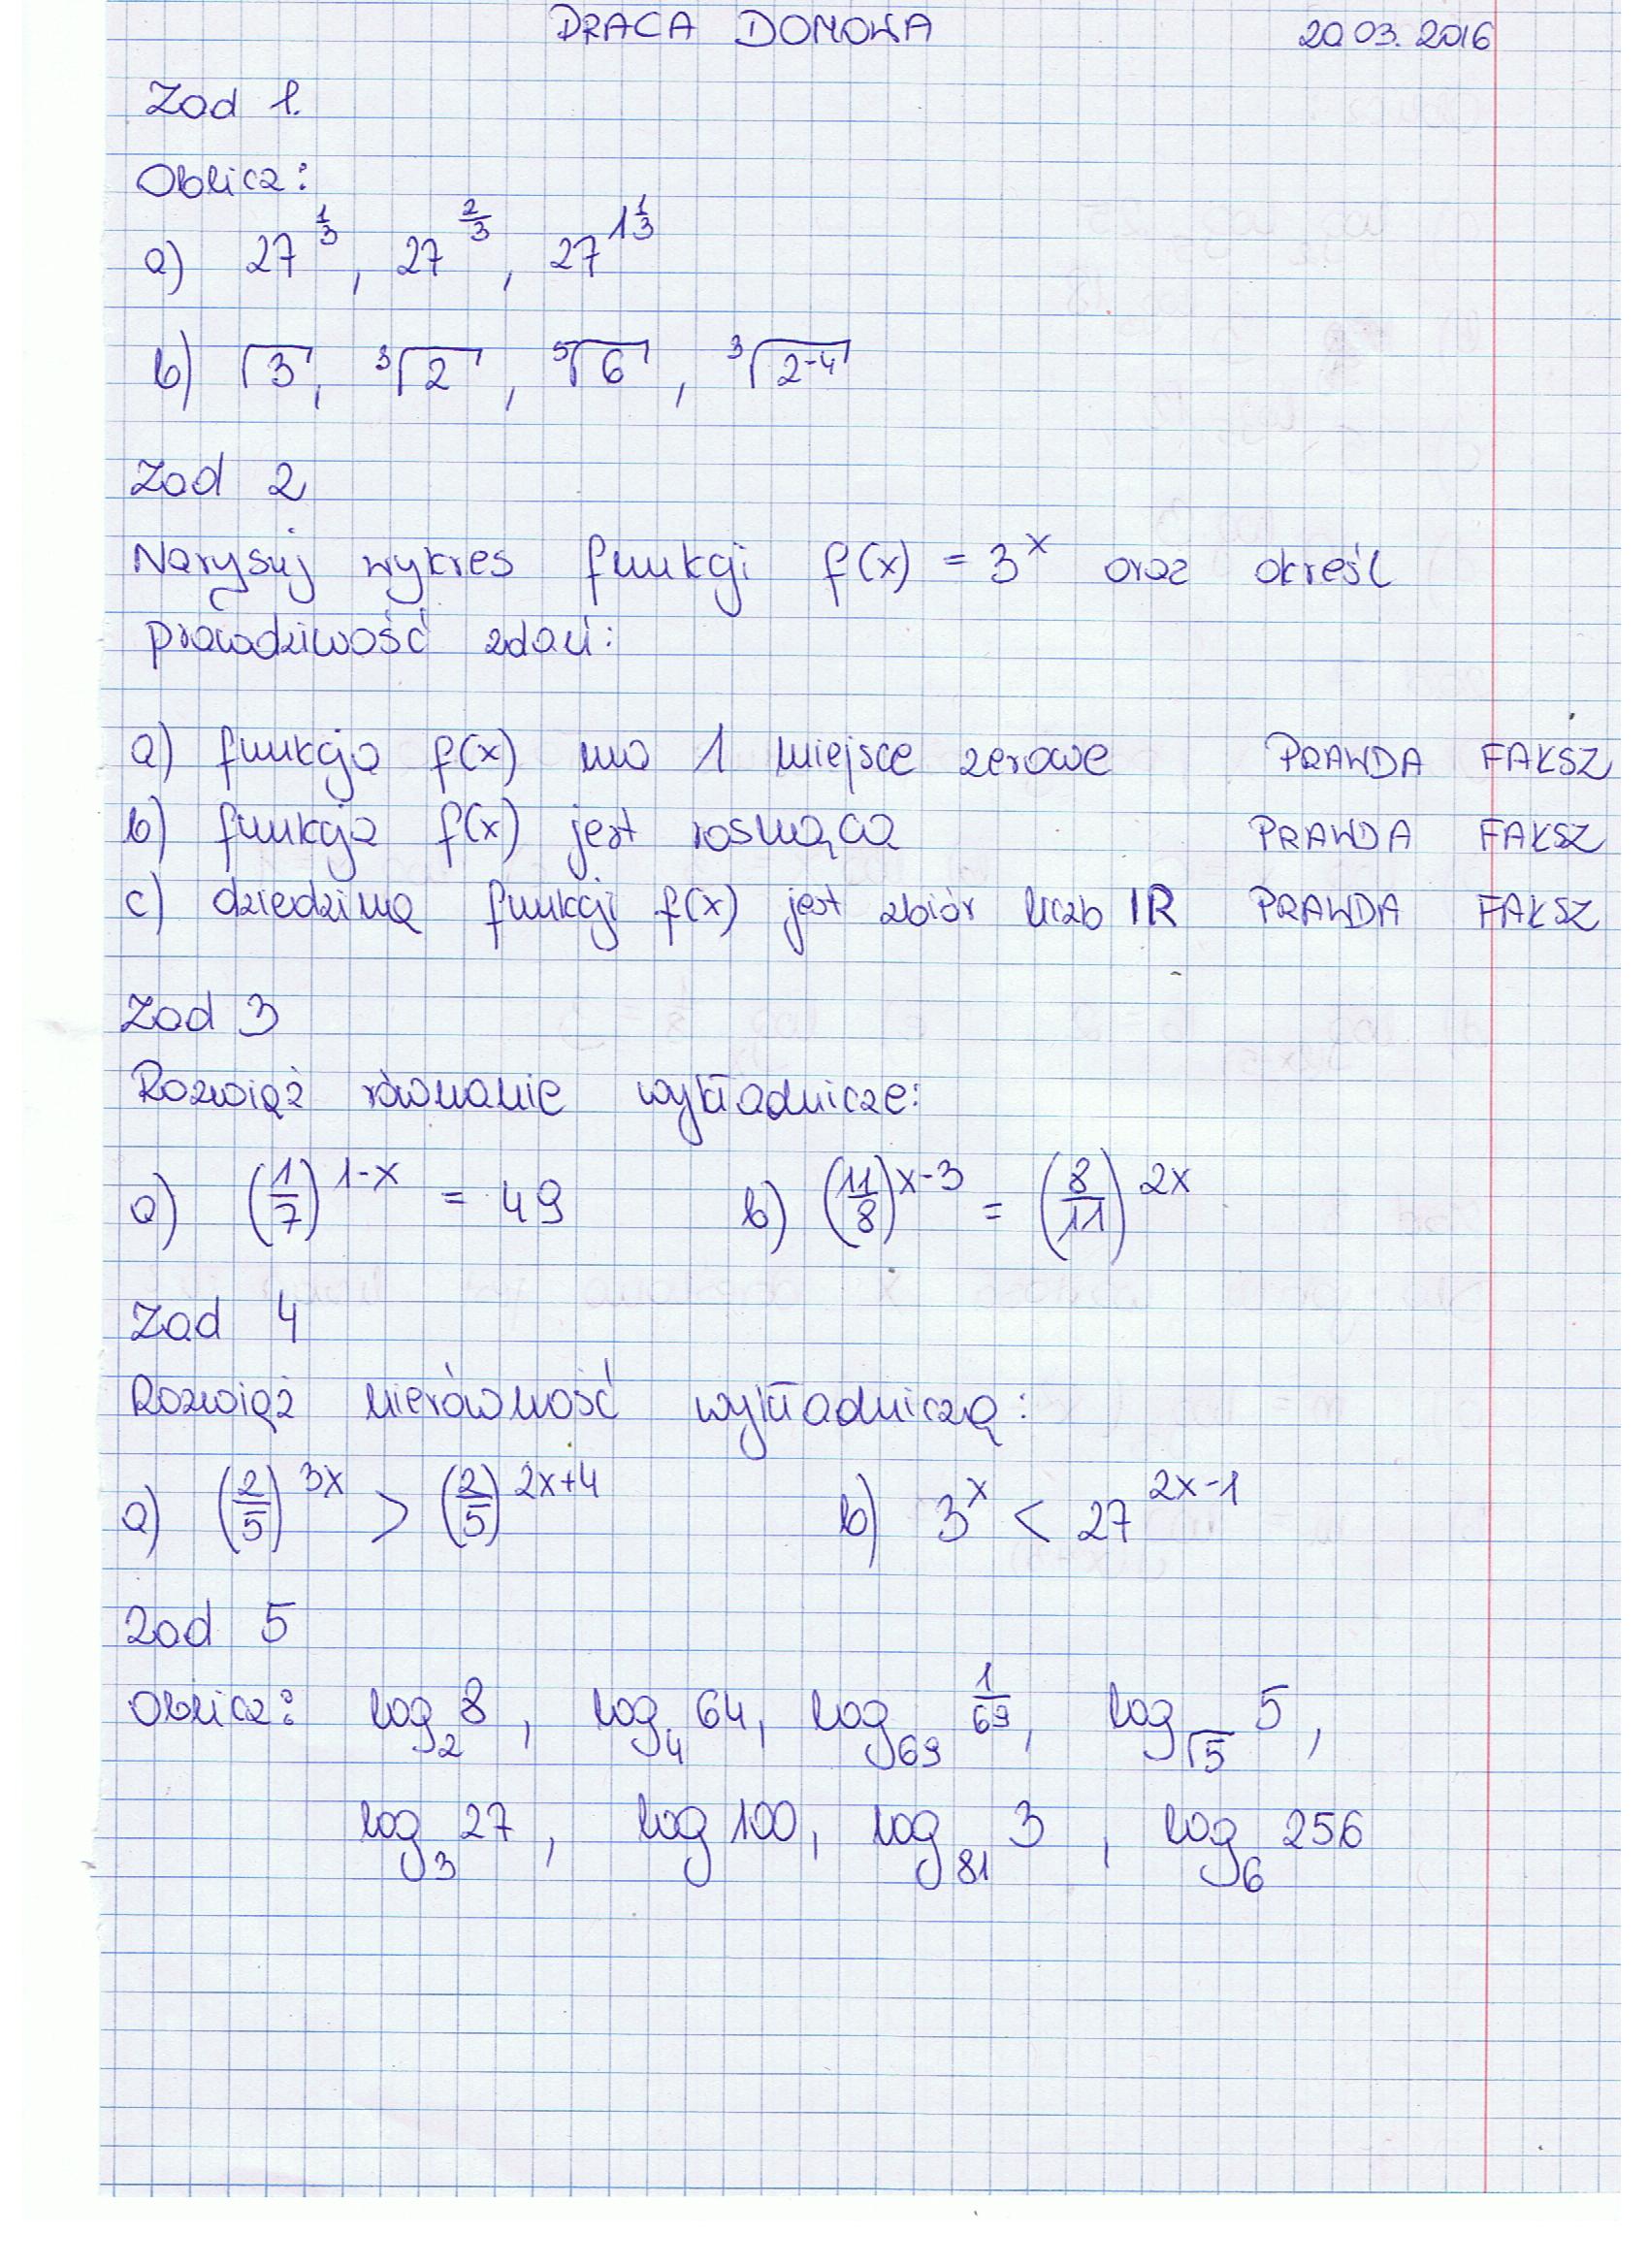 PRACA DOMOWA 20.03.2016
Zad 1.
Oblicz:
a) 27^(1/3), 27^(2/3), 27^(1 1/3)
b) √3, ³√2, ⁵√6, ³√(2⁻⁴)
Zad 2
Narysuj wykres funkcji f(x) = 3^x oraz określ
prawdziwość zdań:
a) funkcja f(x) ma 1 miejsce zerowe PRAWDA FAŁSZ
b) funkcja f(x) jest rosnąca PRAWDA FAŁSZ
c) dziedziną funkcji f(x) jest zbiór liczb IR PRAWDA FAŁSZ
Zad 3
Rozwiąż równanie wykładnicze:
a) (1/7)^(1-x) = 49 b) (11/8)^(x-3) = (8/11)^(2x)
Zad 4
Rozwiąż nierówność wykładniczą:
a) (2/5)^(3x) > (2/5)^(2x+4) b) 3^x < 27^(2x-1)
Zad 5
Oblicz: log₂ 8, log₄ 64, log₆₉ 1/69, log_√5 5,
log₃ 27, log 100, log₈₁ 3, log₆ 256